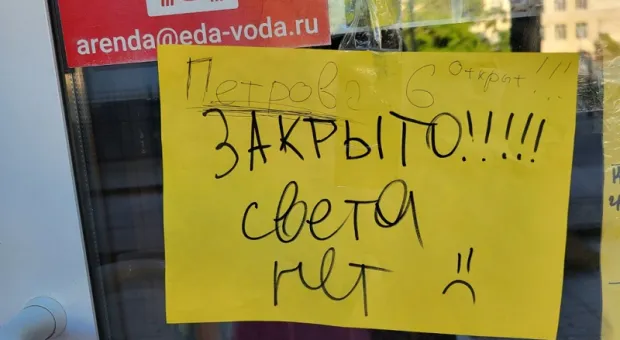 arenda@eda-voda.ru
Петрова 6 открыт!!!
ЗАКРЫТО!!!!!
света
нет